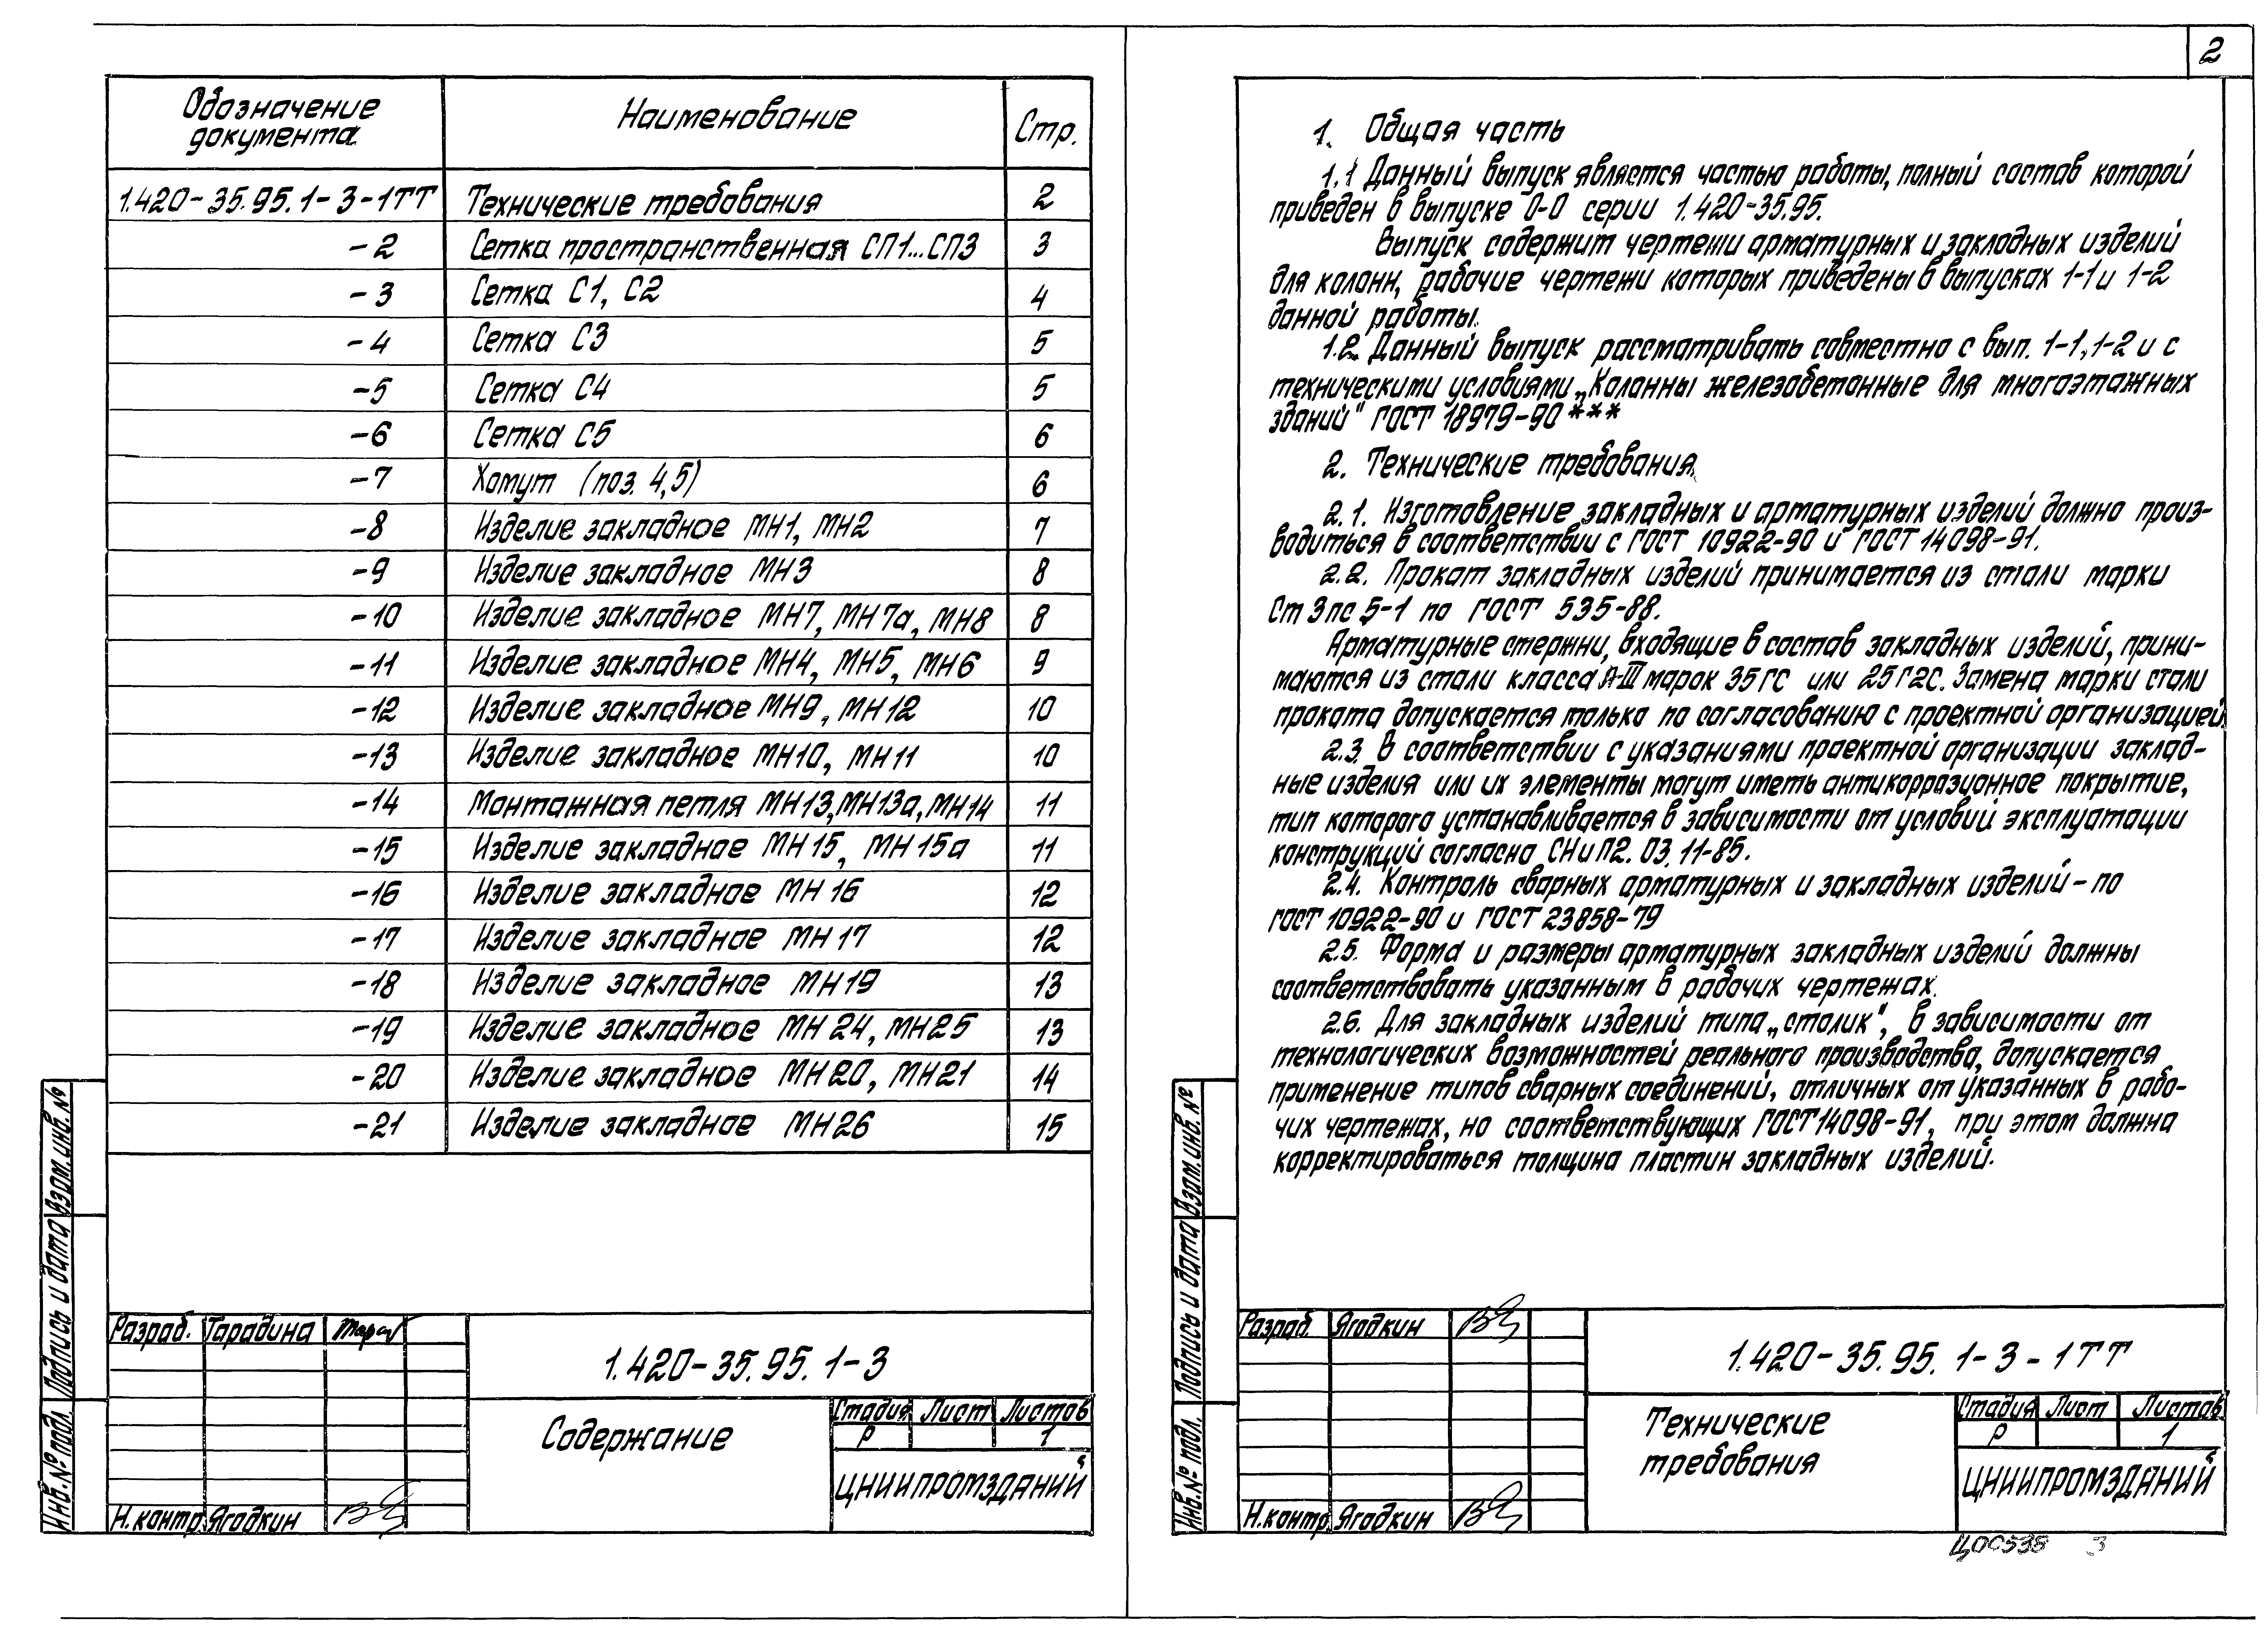 Обозначение документа Наименование Стр.
1.420-35.95.1-3-1ТТ Технические требования 2
-2 Сетка пространственная СП1...СП3 3
-3 Сетка С1, С2 4
-4 Сетка С3 5
-5 Сетка С4 5
-6 Сетка С5 6
-7 Хомут (поз. 4,5) 6
-8 Изделие закладное МН1, МН2 7
-9 Изделие закладное МН3 8
-10 Изделие закладное МН7, МН7а, МН8 8
-11 Изделие закладное МН4, МН5, МН6 9
-12 Изделие закладное МН9, МН12 10
-13 Изделие закладное МН10, МН11 10
-14 Монтажная петля МН13, МН13а, МН14 11
-15 Изделие закладное МН15, МН15а 11
-16 Изделие закладное МН16 12
-17 Изделие закладное МН17 12
-18 Изделие закладное МН19 13
-19 Изделие закладное МН24, МН25 13
-20 Изделие закладное МН20, МН21 14
-21 Изделие закладное МН26 15
Взам.инв.№
Подпись и дата
Инв.№ подл.
Разраб. Тарадина
Н.контр Ягодкин
1.420-35.95.1-3
Содержание
Стадия Лист Листов
Р 1
ЦНИИПРОМЗДАНИЙ
2
1. Общая часть
1.1 Данный выпуск является частью работы, полный состав которой
приведен в выпуске 0-0 серии 1.420-35.95.
Выпуск содержит чертежи арматурных и закладных изделий
для колонн, рабочие чертежи которых приведены в выпусках 1-1 и 1-2
данной работы.
1.2. Данный выпуск рассматривать совместно с вып. 1-1, 1-2 и с
техническими условиями „Колонны железобетонные для многоэтажных
зданий" ГОСТ 18979-90***
2. Технические требования.
2.1. Изготовление закладных и арматурных изделий должно произ-
водиться в соответствии с ГОСТ 10922-90 и ГОСТ 14098-91.
2.2. Прокат закладных изделий принимается из стали марки
Ст 3пс 5-1 по ГОСТ 535-88.
Арматурные стержни, входящие в состав закладных изделий, прини-
маются из стали класса А-III марок 35ГС или 25Г2С. Замена марки стали
проката допускается только по согласованию с проектной организацией.
2.3. В соответствии с указаниями проектной организации заклад-
ные изделия или их элементы могут иметь антикоррозионное покрытие,
тип которого устанавливается в зависимости от условий эксплуатации
конструкций согласно СНиП2.03.11-85.
2.4. Контроль сварных арматурных и закладных изделий - по
ГОСТ 10922-90 и ГОСТ 23858-79
2.5. Форма и размеры арматурных закладных изделий должны
соответствовать указанным в рабочих чертежах.
2.6. Для закладных изделий типа „столик", в зависимости от
технологических возможностей реального производства, допускается
применение типов сварных соединений, отличных от указанных в рабо-
чих чертежах, но соответствующих ГОСТ 14098-91, при этом должна
корректироваться толщина пластин закладных изделий.
Взам.инв.№
Подпись и дата
Инв.№ подл.
Разраб. Ягодкин
Н.контр Ягодкин
1.420-35.95.1-3-1ТТ
Технические
требования
Стадия Лист Листов
Р 1
ЦНИИПРОМЗДАНИЙ
Ц00538 3